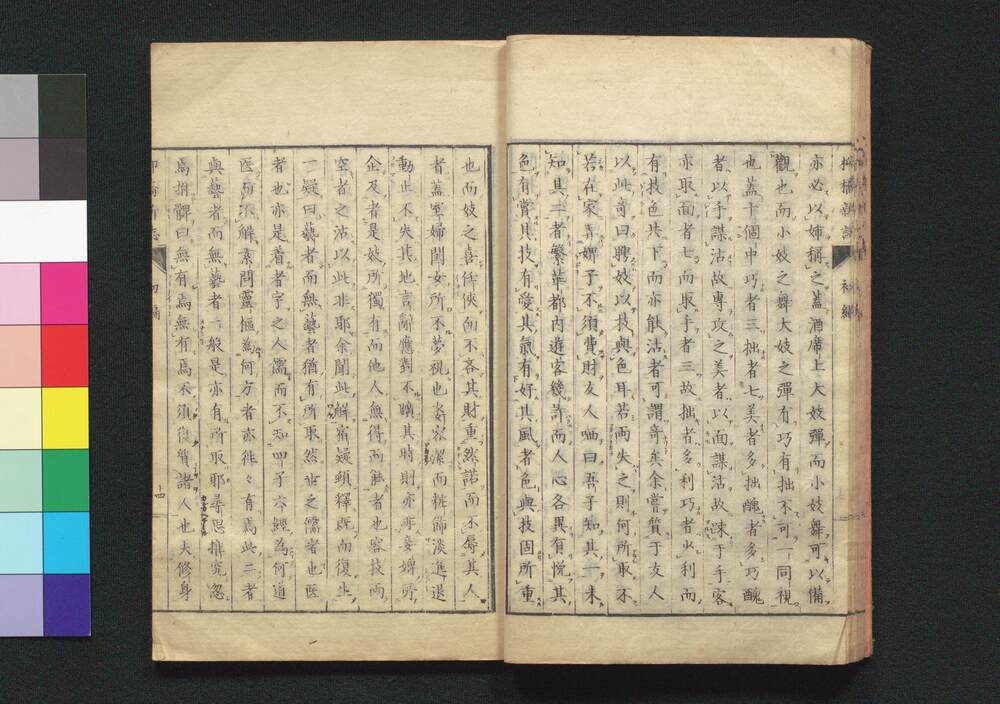 亦必以姉稱之蓋酒席上大妓彈而小妓舞可以備
觀也而小妓之舞大妓之彈有巧有拙不可一同視
也蓋十個中巧者三拙者七美者多拙醜者多巧醜
者以手謀沽故專攻之美者以面謀沽故疎于手客
亦取面者七而取手者三故拙者多利巧者少利而
有技色共下而亦能沽者可謂奇矣余嘗質于友人
以此竒曰聘妓以技與色耳若兩失之則何所取不
若在家弄婢子不須費財友人哂曰吾子知其一未
知其二者繁華都内遊客幾許而人心各異有悦其
色有賞其技有愛其氣有好其風者色與技固所重
也而妓之喜任俠而不吝其財重然諾而不辱其人
者蓋室婦閨女所不夢視也姿容潔而粧飾淡進退
動止不失其地言辭應對不曠其時則亦非妾婢所
企及者是妓所獨有而他人無得而能者也容技兩
空者之沽以此非耶余聞此解宿疑頓釋既而復生
一疑曰藝者而無藝者猶有所取然世之儒者也医
者也亦是着者字之人儒而不知四子六經為何道
医而不解素問靈樞為何方者亦徃々有焉此二者
與藝者而無藝者一般是亦有所取耶尋思推究忽
焉拊髀曰無有焉無有焉不須復質諸人也夫修身